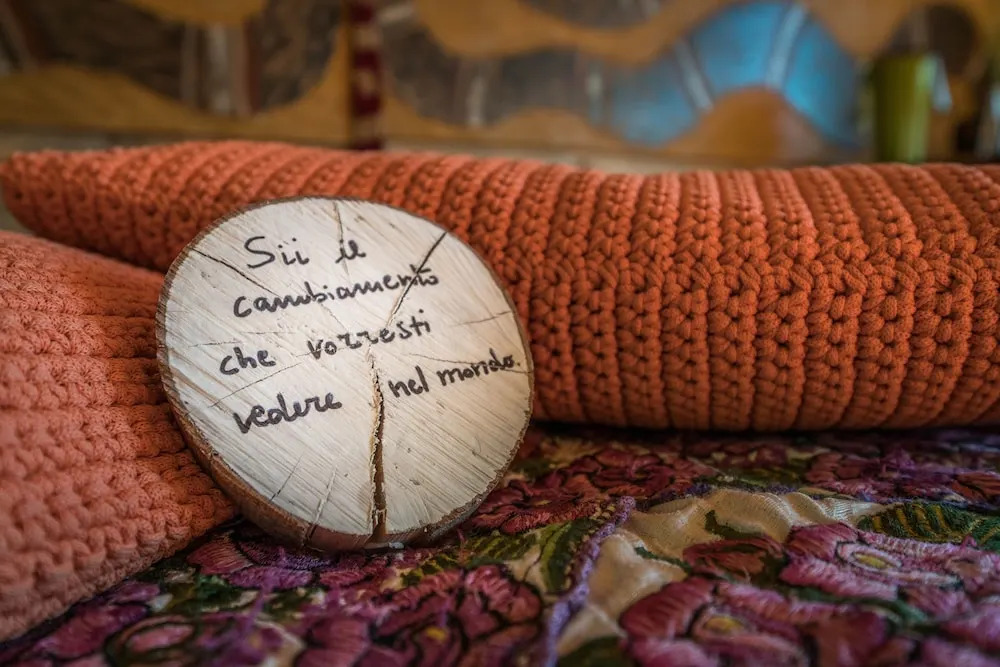 Sii il
cambiamento
che vorresti
vedere nel mondo.